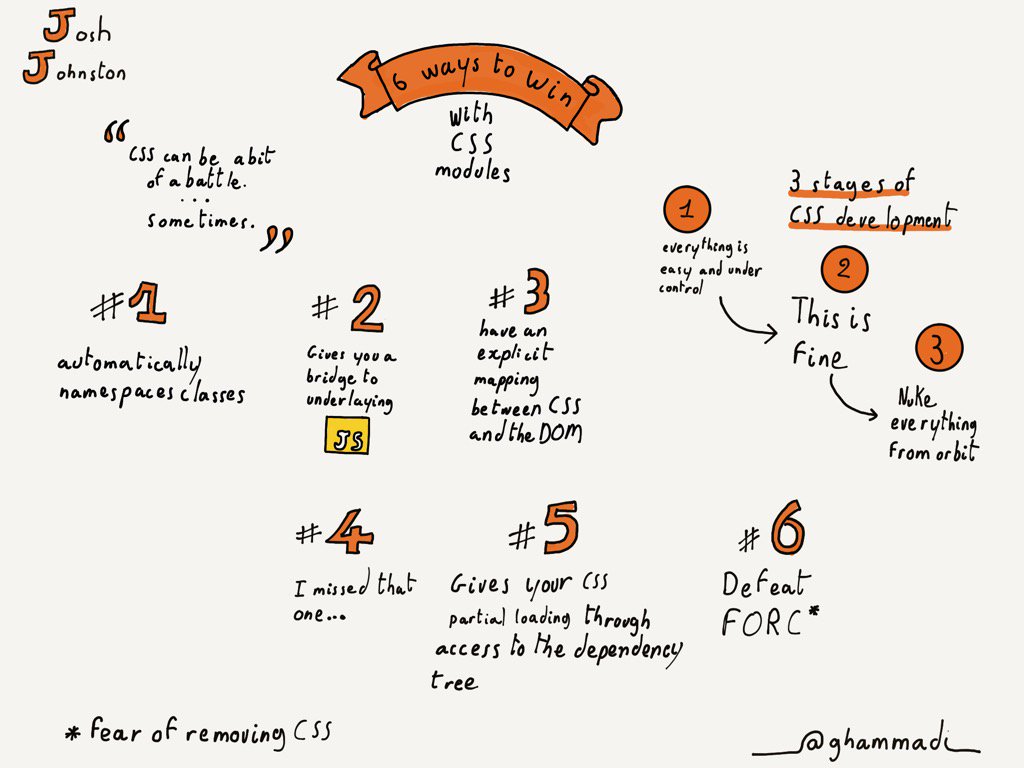 Josh
Johnston
6 ways to win
with
CSS
modules
“
CSS can be a bit
of a battle.
...
sometimes.
”
3 stages of
CSS development
1
everything is
easy and under
control
2
This is
Fine
3
Nuke
everything
From orbit
#1
automatically
namespaces classes
#2
Gives you a
bridge to
underlaying
JS
#3
have an
explicit
mapping
between CSS
and the DOM
#4
I missed that
one...
#5
Gives your CSS
partial loading through
access to the dependency
tree
#6
Defeat
FORC*
* fear of removing CSS
@ghammadi